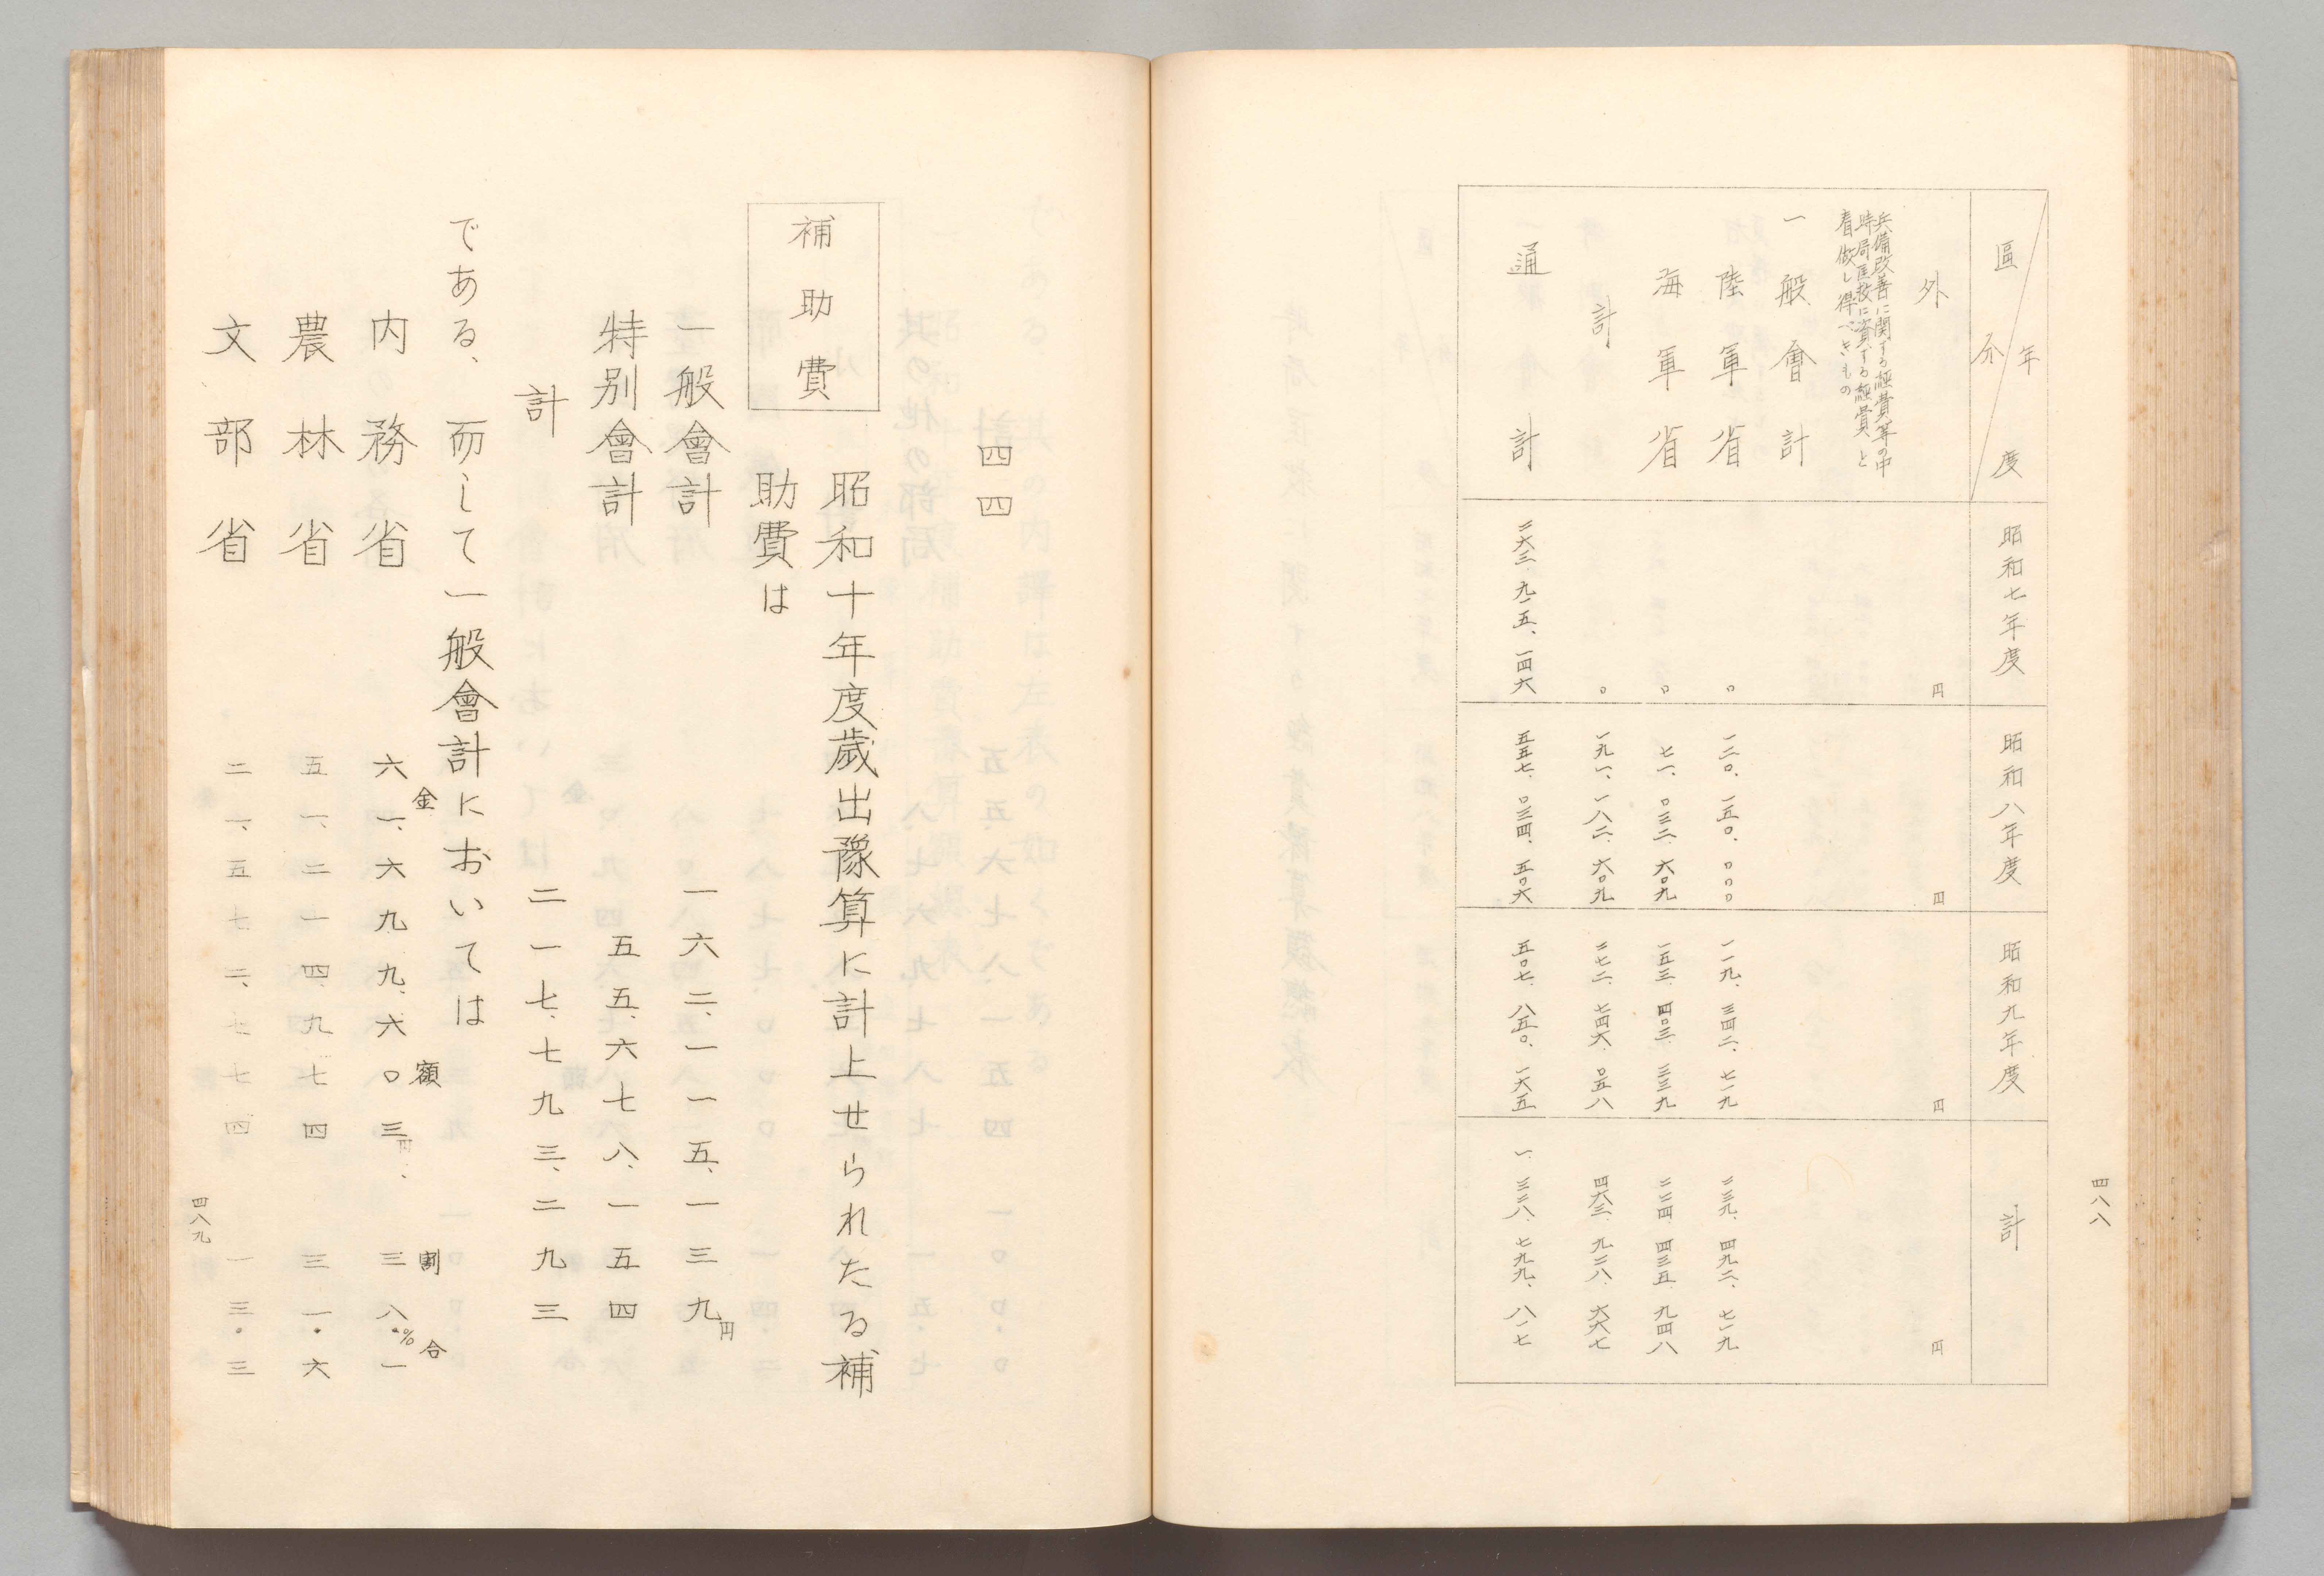 四八八
區分 年度 昭和七年度 昭和八年度 昭和九年度 計
外 円 円 円 円
兵備改善に関する経費等の中
時局匡救に資する経費と
看做し得べきもの
一般會計
陸軍省 〇 一二〇、一五〇、〇〇〇 一一九、三四二、七一九 二三九、四九二、七一九
海軍省 〇 七一、〇三二、六〇九 一五三、四〇三、三三九 二二四、四三五、九四八
計 〇 一九一、一八二、六〇九 二七二、七四六、〇五八 四六三、九二八、六六七
通計 二六三、九一五、一四六 五五七、〇三四、五〇六 五〇七、八五〇、一六五 一、三二八、七九九、八一七
四四
補助費
昭和十年度歳出豫算に計上せられたる補
助費は
一般會計 一六二、一一五、一三九円
特別會計 五五、六七八、一五四
計 二一七、七九三、二九三
である、而して一般會計においては
金額 割合
内務省 六一、六九九、六〇三円、 三八・一%
農林省 五一、二一四、九七四 三一・六
文部省 二一、五七二、七七四 一三・三
四八九